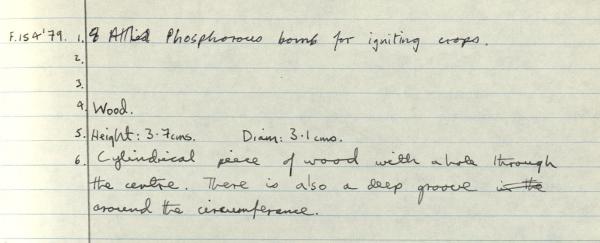 F.154'79. 1. Allied Phosphorous bomb for igniting crops.
2.
3.
4. Wood.
5. Height: 3.7cms. Diam: 3.1cms.
6. Cylindrical piece of wood with a hole through
the centre. There is also a deep groove in the
around the circumference.